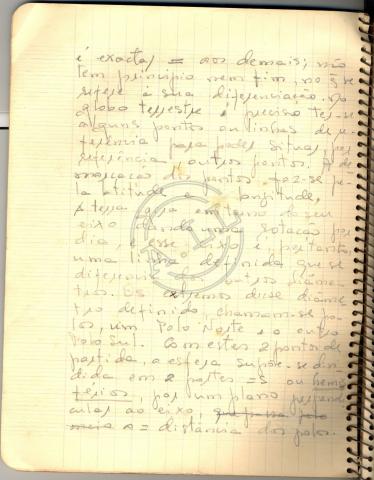 é exactas = aos demais; não
tem princípio nem fim, no q se
refere à sua diferenciação. No
globo terrestre é preciso ter-se
alguns pontos ou linhas de re-
ferência para poder situar, por
referência, outros pontos. A de
marcação dos pontos faz-se pe
la latitude e longitude.
A terra gira em torno do seu
eixo dando uma rotação por
dia, e esse eixo é, portanto,
uma linha definida que se
diferencia dos outros diâme-
tros. Os extremos desse diâme
tro definido, chamam-se po-
los, um Polo Norte e o outro
Polo Sul. Com estes 2 pontos de
partida, a esfera supõe-se divi
dida em 2 partes =s ou hemis
férios, por um plano perpendi
cular ao eixo, que passa pelo
meio a = distância dos polos.